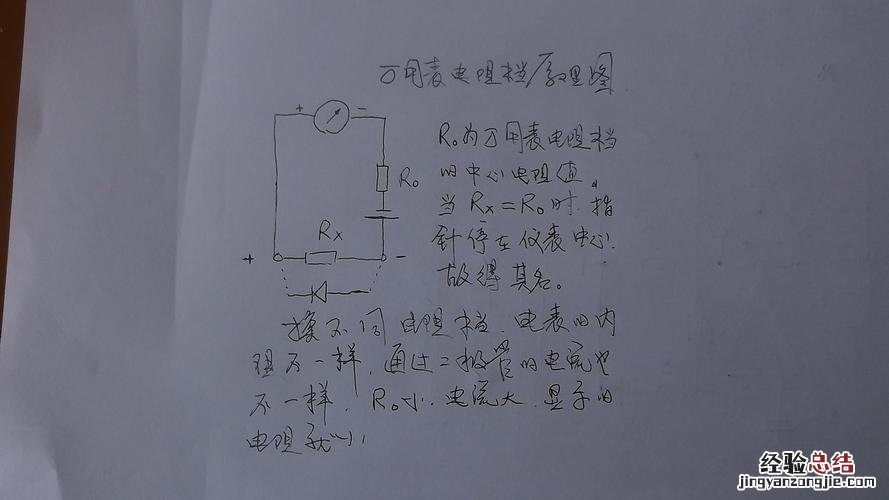 万用表电阻档原理图
+ -
R₀为万用表电阻档
R₀
的中心电阻值。
当 Rx=R₀时.指
Rx
针停在仪表中心.
+ -
故得其名。
换不同电阻档.电表的内
阻不一样,通过二极管的电流也
不一样. R₀小.电流大.显示的
电阻就小.
经验总结
jingyanzongjie.com